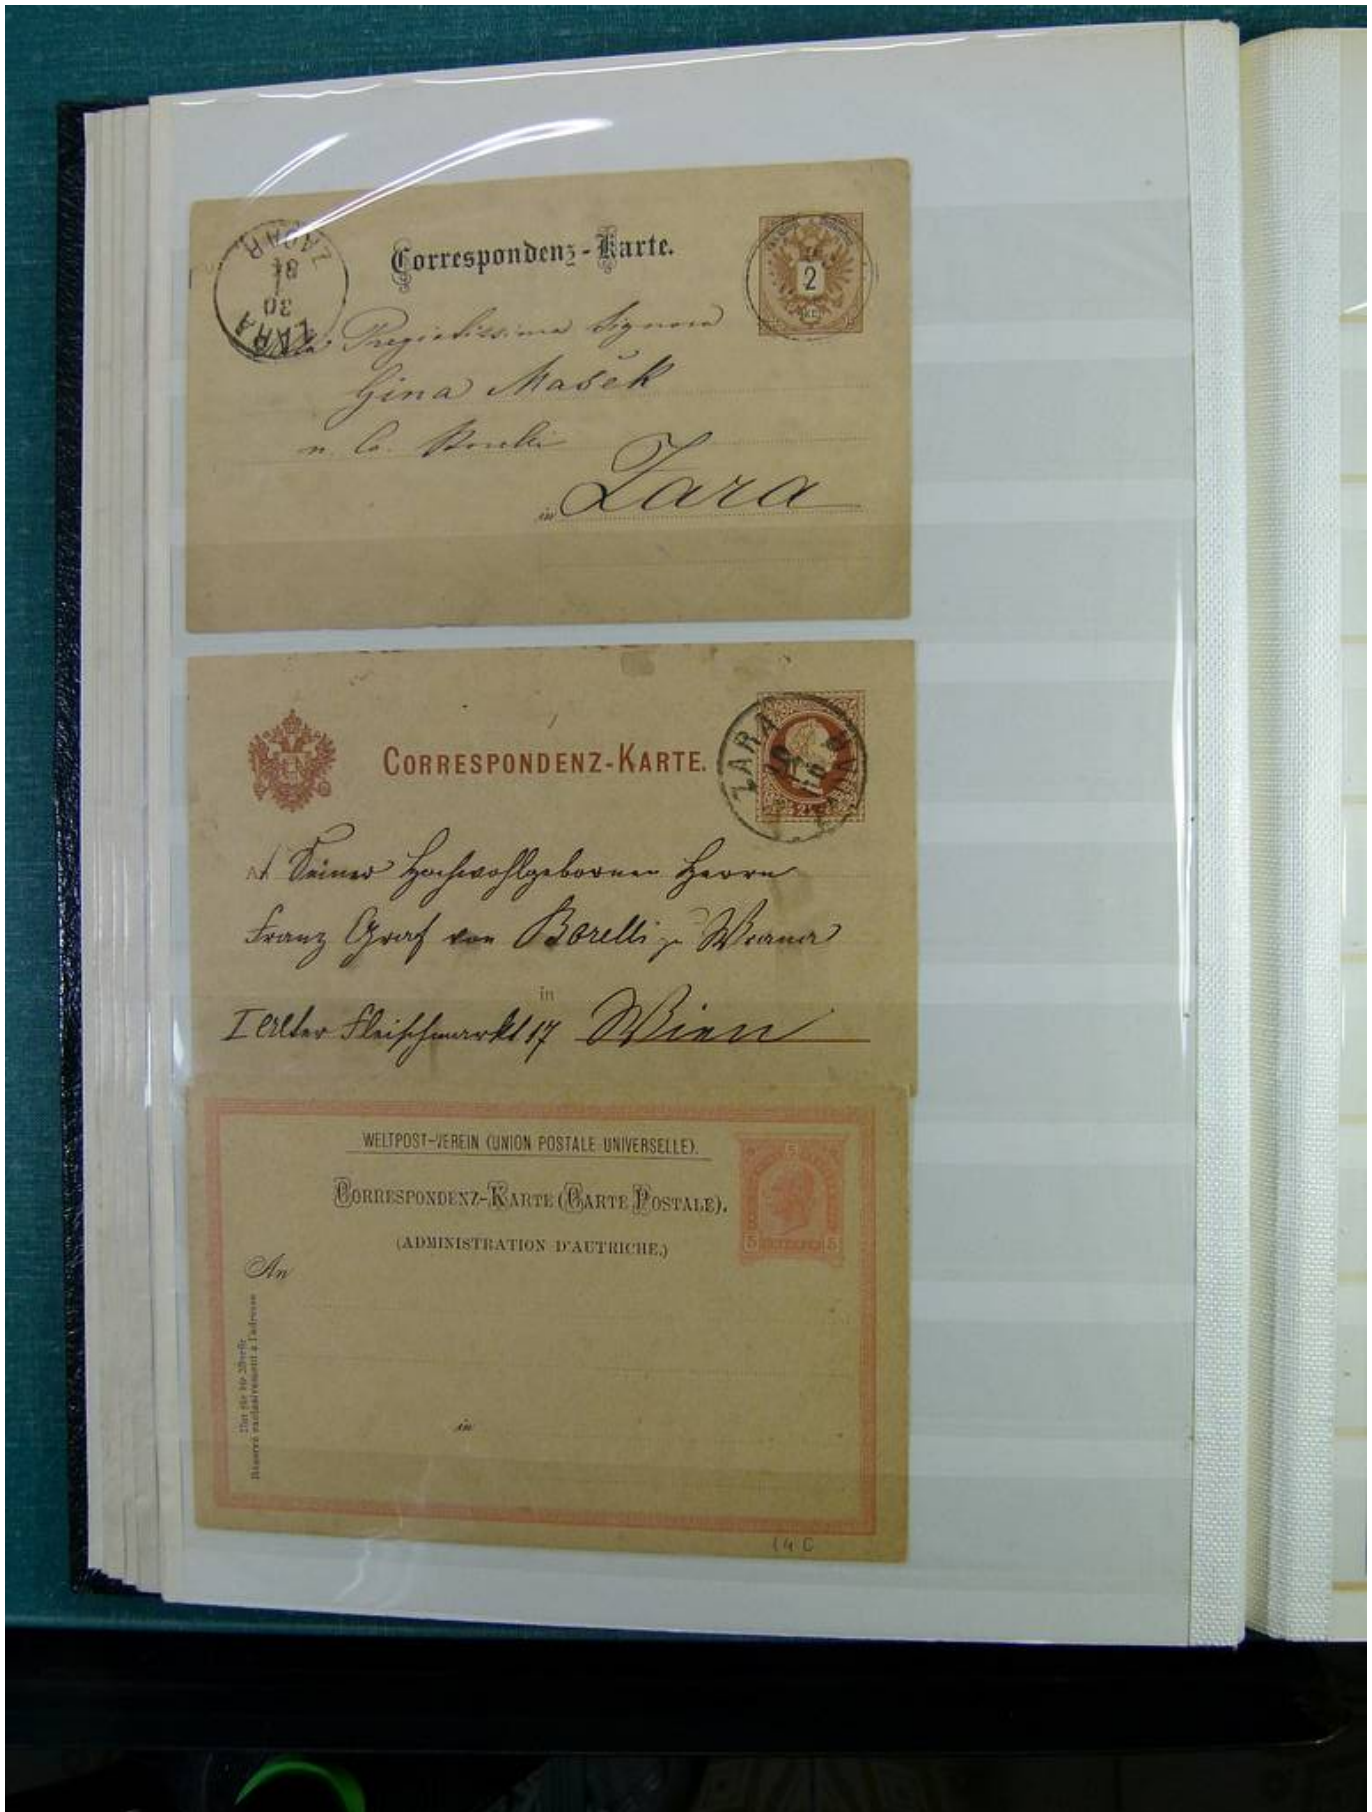 Correspondenz-Karte.
ZARA
30
1
84
ZADAR
2
KR.
Alla Pregiatissima Signora
Gina Mašek
n. Co. Borelli
in Zara
CORRESPONDENZ-KARTE.
ZARA
ZADAR
An Seiner Hochwohlgebornen Herrn
Franz Graf von Borelli zu Wrana
in
I Alter Fleischmarkt 17 Wien
WELTPOST-VEREIN (UNION POSTALE UNIVERSELLE).
CORRESPONDENZ-KARTE (CARTE POSTALE).
(ADMINISTRATION D'AUTRICHE.)
5
5 5
An
Nur für die Adresse
Réservé exclusivement à l'adresse
in